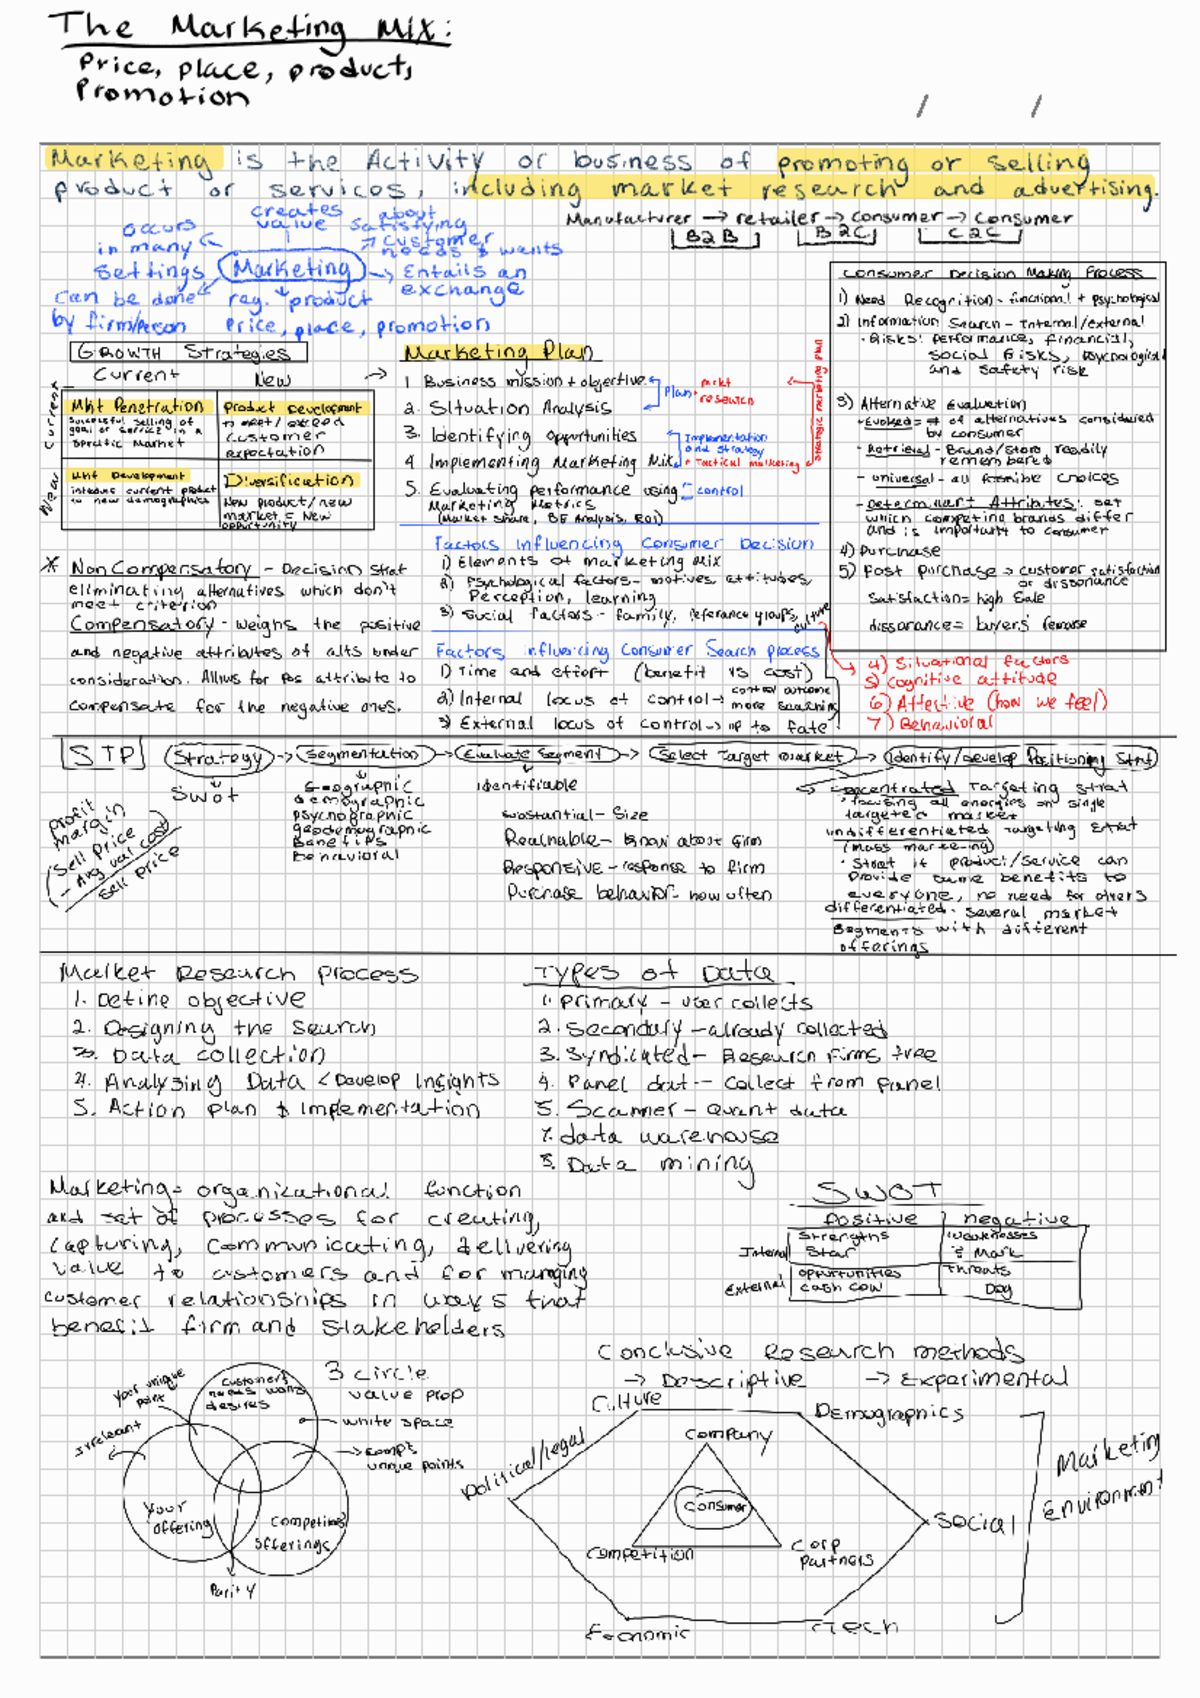 The Marketing Mix:
Price, place, product,
Promotion
/ /
Marketing is the Activity or business of promoting or selling
product or services, including market research and advertising.
Manufacturer → retailer → consumer → consumer
B2B B2C C2C
creates value
about satisfying customer needs & wants
occurs in many settings
Marketing
Entails an exchange
can be done by firm/person
reg. product
Price, place, promotion
GROWTH Strategies
Current New
Current
New
Mkt Penetration
successful selling of
good or service in a
specific market
Product Development
→ meet/exceed
customer
expectation
Mkt Development
introduce current product
to new demographics
Diversification
New product/new
market = New
opportunity
Marketing Plan
1 Business mission + objective
2. Situation Analysis
3. Identifying opportunities
4 Implementing Marketing Mix
5. Evaluating performance using
Marketing Metrics
(Market share, BE Analysis, ROI)
Plan • mrkt
research
Implementation
and strategy
• Tactical marketing
control
strategic marketing plan
Consumer Decision Making Process
1) Need Recognition - functional + psychological
2) Information Search - Internal/external
• Risks: performance, financial,
social risks, psychological
and safety risk
3) Alternative Evaluation
- Evoked = # of alternatives considered
by consumer
- Retrieval - Brand/Store readily
remembered
- universal - all possible choices
- Determinant Attributes: set
which competing brands differ
and is important to consumer
4) Purchase
5) Post purchase → customer satisfaction
or dissonance
Satisfaction = high sale
dissonance = buyers remorse
Factors Influencing Consumer Decision
1) Elements of marketing mix
2) Psychological factors - motives, attitudes,
Perception, learning
3) Social factors - family, reference groups, culture
4) Situational factors
5) Cognitive attitude
6) Affective (how we feel)
7) Behavioral
* Non Compensatory - Decision strat
eliminating alternatives which don't
meet criterion
Compensatory - weighs the positive
and negative attributes of alts under
consideration. Allows for pos attribute to
compensate for the negative ones.
Factors influencing Consumer Search process
1) Time and effort (benefit vs cost)
2) Internal locus of control → control outcome
more searching
3) External locus of control → up to fate
STP Strategy → Segmentation → Evaluate Segment → Select Target market → Identify/develop Positioning Strat
Swot
profit
margin
(Sell Price
- Avg var cost)
Sell price
Geographic
demographic
psychographic
geodemographic
Benefits
Behavioral
Identifiable
substantial - Size
Reachable - know about firm
Responsive - response to firm
Purchase behavior - how often
concentrated Targeting strat
• focusing all energies on single
targeted market
undifferentiated Targeting strat
(mass marketing)
• Strat if product/service can
provide same benefits to
everyone, no need for others
differentiated - several market
segments with different
offerings
Market Research process
1. Define objective
2. Designing the search
3. Data collection
4. Analysing Data < Develop Insights
5. Action plan & implementation
Types of Data
1. Primary - user collects
2. Secondary - already collected
3. Syndicated - Research firms free
4. Panel dat - collect from panel
5. Scanner - quant data
7. data warehouse
8. Data mining
Marketing = organizational function
and set of processes for creating,
capturing, communicating, delivering
value to customers and for managing
customer relationships in ways that
benefit firm and stakeholders
SWOT
positive negative
Internal
Strengths
Star
weaknesses
? Mark
External
opportunities
cash cow
threats
Dog
3 circle
value prop
your unique
point
irrelevant
customers
needs wants
desires
white space
compt
unique points
your
offering
competitors
offerings
Parity
Conclusive Research methods
→ Descriptive → Experimental
Culture
Demographics
Political/legal
Company
Consumer
Competition
Corp
partners
Social
Economic
Tech
Marketing
environment